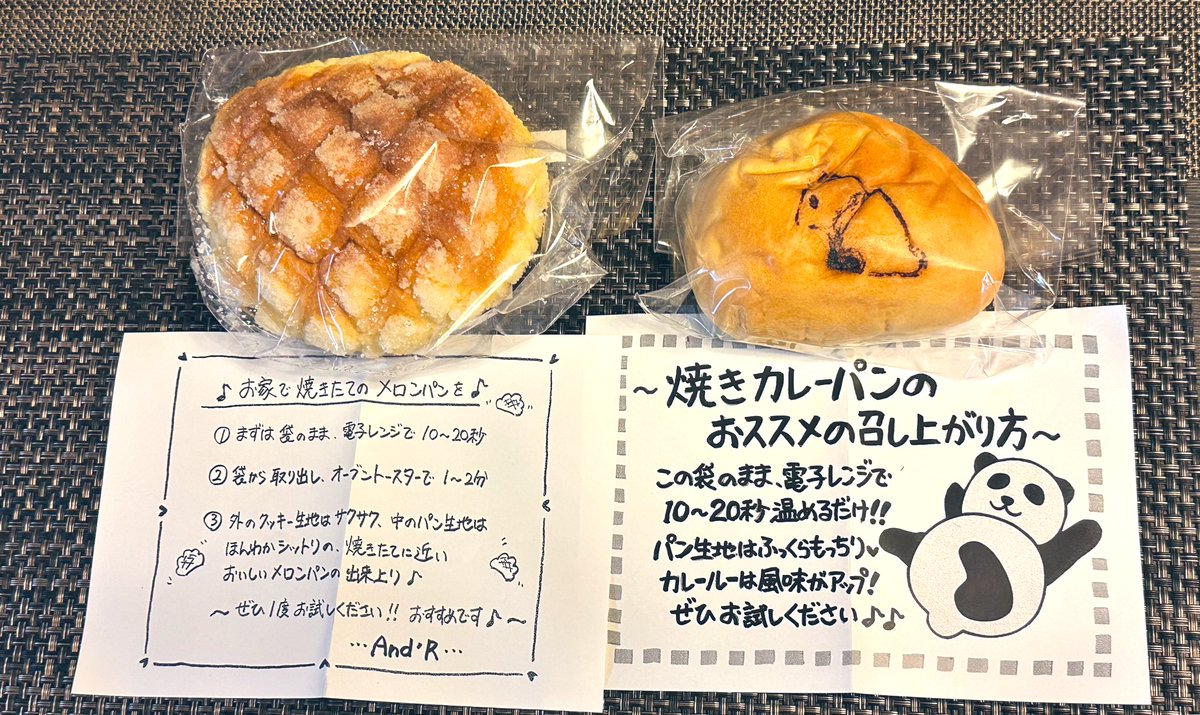 ♪ お家で焼きたてのメロンパンを ♪
① まずは袋のまま、電子レンジで10〜20秒
② 袋から取り出し、オーブントースターで1〜2分
③ 外のクッキー生地はサクサク、中のパン生地は
ほんわかシットリの、焼きたてに近い
おいしいメロンパンの出来上り♪
〜ぜひ1度お試しください!! おすすめです♪〜
…And'R…
〜焼きカレーパンの
おススメの召し上がり方〜
この袋のまま、電子レンジで
10〜20秒温めるだけ!!
パン生地はふっくらもっちり♥
カレールーは風味がアップ!
ぜひお試しください♪♪